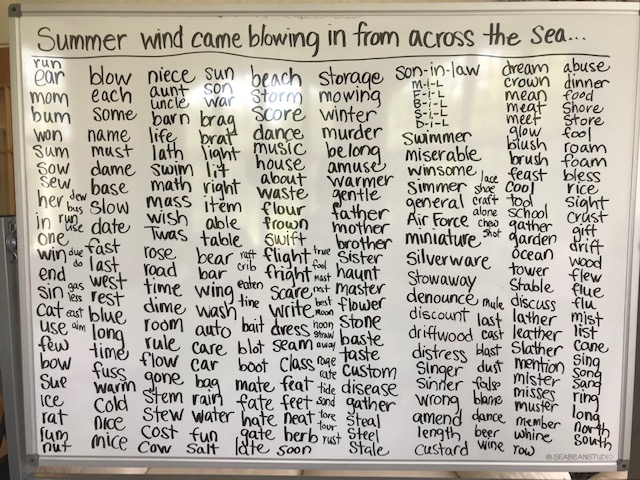 Summer wind came blowing in from across the Sea...
run
ear
mom
bum
won
sum
sow
sew
her dew
bus
in run
use
one
win due
do
end
sin gas
less
cat east
use aim
few
bow
sue
ice
rat
rum
nut
blow
each
some
name
must
dame
base
slow
date
fast
last
west
rest
blue
long
time
fuss
warm
cold
nice
mice
niece
aunt
uncle
barn
life
lath
swim
math
mass
wish
'Twas
rose
road
time
dime
room
rule
flow
gone
stem
stew
cost
cow
sun
son
war
brag
brat
light
lit
right
item
able
table
bear raft
bar crib
wing eaten
wash tine
auto bait
care blot
car boot
bag mate
rain fate
water hate
fun gate
salt late
beach
storm
score
dance
music
house
about
waste
flour
frown
swift
flight true
fool
fright mast
scare nest
best
write moon
dress noon
straw
seam away
class rage
rate
feat tide
feet sand
neat tore
tour
herb rust
soon
storage
mowing
winter
murder
belong
amuse
warmer
gentle
father
mother
brother
sister
haunt
master
flower
stone
baste
taste
custom
disease
gather
steal
steel
stale
son-in-law
M-I-L
F-I-L
B-I-L
S-I-L
D-I-L
swimmer
miserable
winsome
simmer lace
shoe
general craft
Air Force alone
chew
miniature shot
silverware
stowaway
denounce mule
discount last
driftwood cast
distress blast
singer dust
sinner false
wrong blame
amend dance
length beer
custard wine
dream
crown
mean
meat
meet
glow
blush
brush
feast
cool
tool
school
gather
garden
ocean
tower
stable
discuss
lather
leather
slather
mention
mister
misses
muster
member
whine
row
abuse
dinner
food
shore
store
fool
roam
foam
bless
rice
sight
crust
gift
drift
wood
flew
flue
flu
mist
list
cane
sing
song
sand
ring
long
north
south
@SEABEANSTUDIO